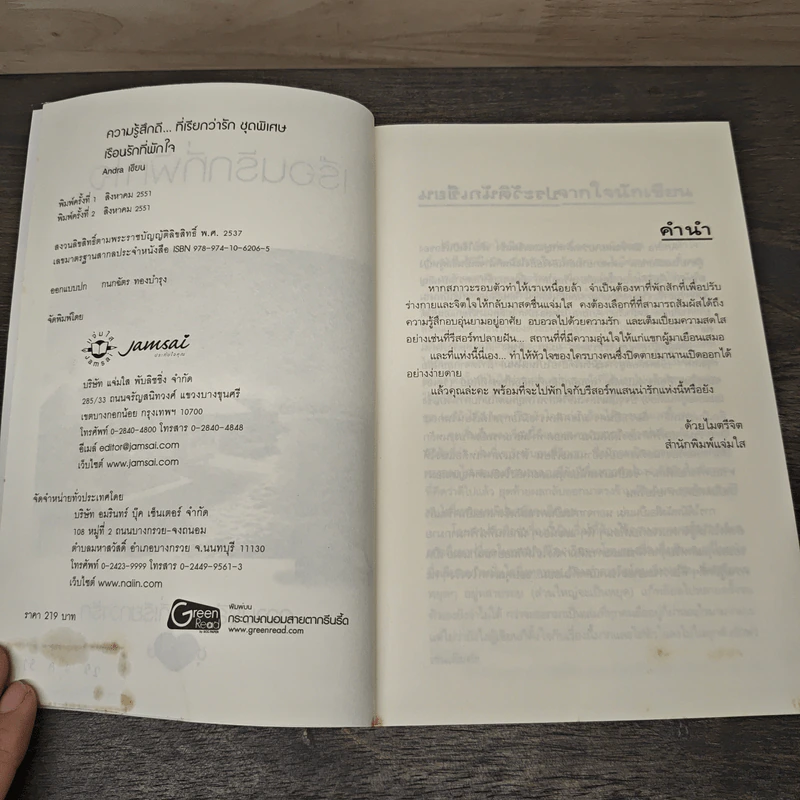 ความรู้สึกดี... ที่เรียกว่ารัก ชุดพิเศษ
เรือนรักที่พักใจ
Andra เขียน
พิมพ์ครั้งที่ 1 สิงหาคม 2551
พิมพ์ครั้งที่ 2 สิงหาคม 2551
สงวนลิขสิทธิ์ตามพระราชบัญญัติลิขสิทธิ์ พ.ศ. 2537
เลขมาตรฐานสากลประจำหนังสือ ISBN 978-974-10-6206-5
ออกแบบปก กนกฉัตร ทองบำรุง
จัดพิมพ์โดย
แจ่มใส
jamsai
jamsai
บริษัท แจ่มใส พับลิชชิ่ง จำกัด
285/33 ถนนจรัญสนิทวงศ์ แขวงบางขุนศรี
เขตบางกอกน้อย กรุงเทพฯ 10700
โทรศัพท์ 0-2840-4800 โทรสาร 0-2840-4848
อีเมล์ editor@jamsai.com
เว็บไซต์ www.jamsai.com
จัดจำหน่ายทั่วประเทศโดย
บริษัท อมรินทร์ บุ๊ค เซ็นเตอร์ จำกัด
108 หมู่ที่ 2 ถนนบางกรวย-จงถนอม
ตำบลมหาสวัสดิ์ อำเภอบางกรวย จ.นนทบุรี 11130
โทรศัพท์ 0-2423-9999 โทรสาร 0-2449-9561-3
เว็บไซต์ www.naiin.com
ราคา 219 บาท
Green Read
พิมพ์บน
กระดาษถนอมสายตากรีนรี้ด
www.greenread.com
คำนำ
หากสภาวะรอบตัวทำให้เราเหนื่อยล้า จำเป็นต้องหาที่พักสักที่เพื่อปรับ
ร่างกายและจิตใจให้กลับมาสดชื่นแจ่มใส คงต้องเลือกที่ที่สามารถสัมผัสได้ถึง
ความรู้สึกอบอุ่นยามอยู่อาศัย อบอวลไปด้วยความรัก และเต็มเปี่ยมความสดใส
อย่างเช่นที่รีสอร์ทปลายฝัน... สถานที่ที่มีความอุ่นใจให้แก่แขกผู้มาเยือนเสมอ
และที่แห่งนี้นี่เอง... ทำให้หัวใจของใครบางคนซึ่งปิดตายมานานเปิดออกได้
อย่างง่ายดาย
แล้วคุณล่ะคะ พร้อมที่จะไปพักใจกับรีสอร์ทแสนน่ารักแห่งนี้หรือยัง
ด้วยไมตรีจิต
สำนักพิมพ์แจ่มใส